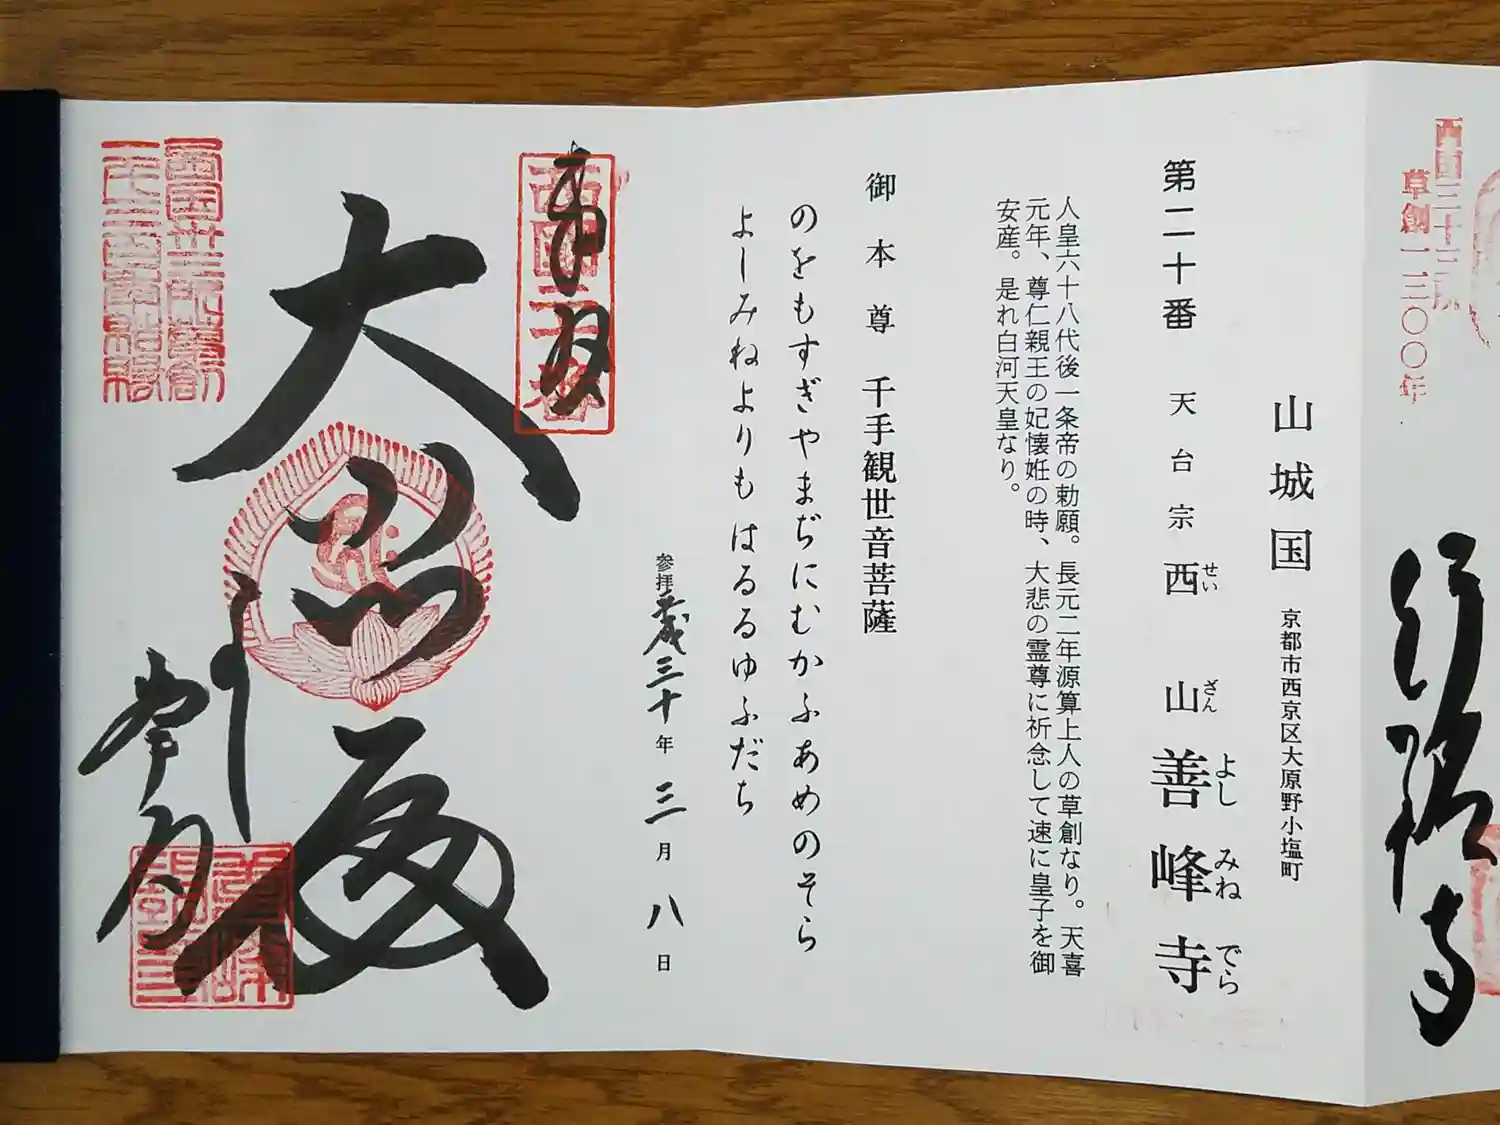 西国三十三所
草創一三〇〇年
山城国 京都市西京区大原野小塩町
第二十番 天台宗 西山 善峰寺
せい ざん よし みね でら
人皇六十八代後一条帝の勅願。長元二年源算上人の草創なり。天喜
元年、尊仁親王の妃懐妊の時、大悲の霊尊に祈念して速に皇子を御
安産。是れ白河天皇なり。
御本尊 千手観世音菩薩
のをもすぎやまぢにむかふあめのそら
よしみねよりもはるるゆふだち
参拝平成三十年三月八日
奉拝
西国二十番
大悲殿
西国三十三所草創